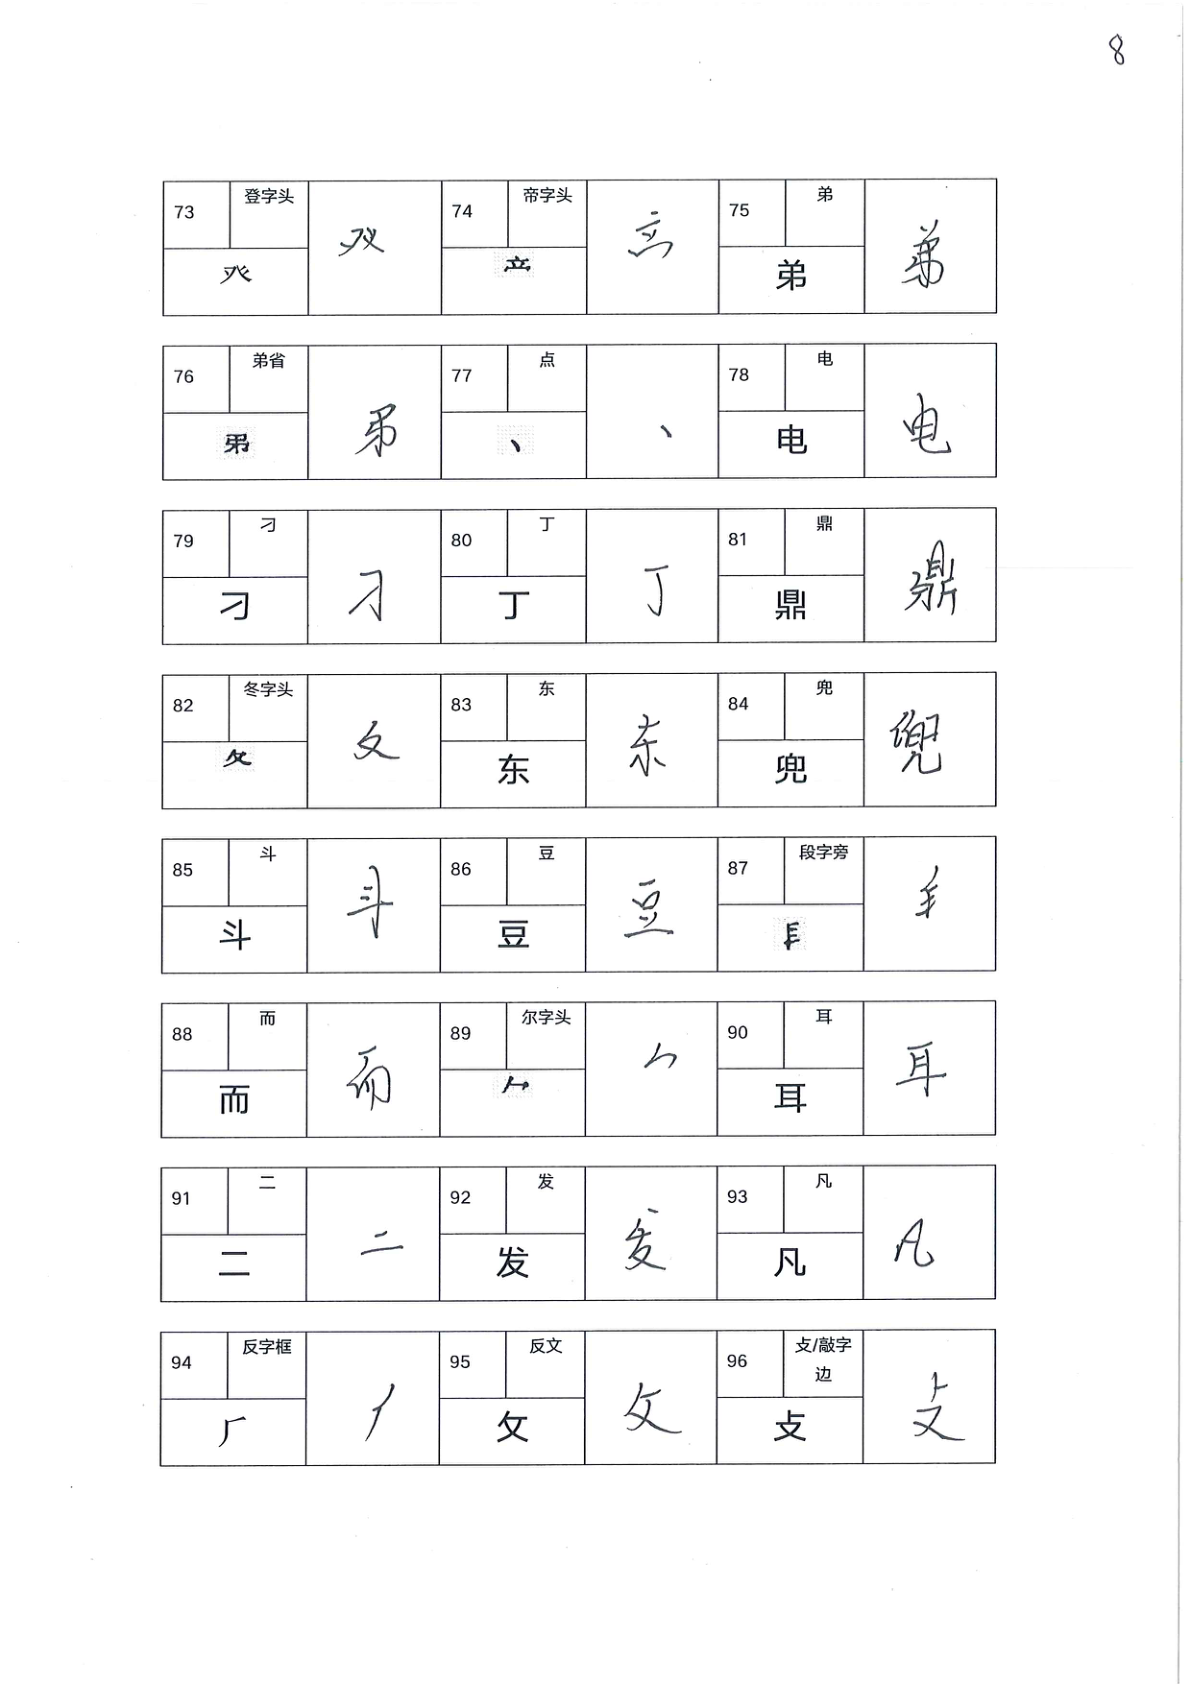 8
73 登字头 癶 癶 74 帝字头 75 弟 弟 弟
76 弟省 77 点 丶 丶 78 电 电 电
79 刁 刁 刁 80 丁 丁 丁 81 鼎 鼎 鼎
82 冬字头 夂 夂 83 东 东 东 84 兜 兜 兜
85 斗 斗 斗 86 豆 豆 豆 87 段字旁
88 而 而 而 89 尔字头 90 耳 耳 耳
91 二 二 二 92 发 发 发 93 凡 凡 凡
94 反字框 𠂆 𠂆 95 反文 攵 攵 96 攴/敲字边 攴 攴